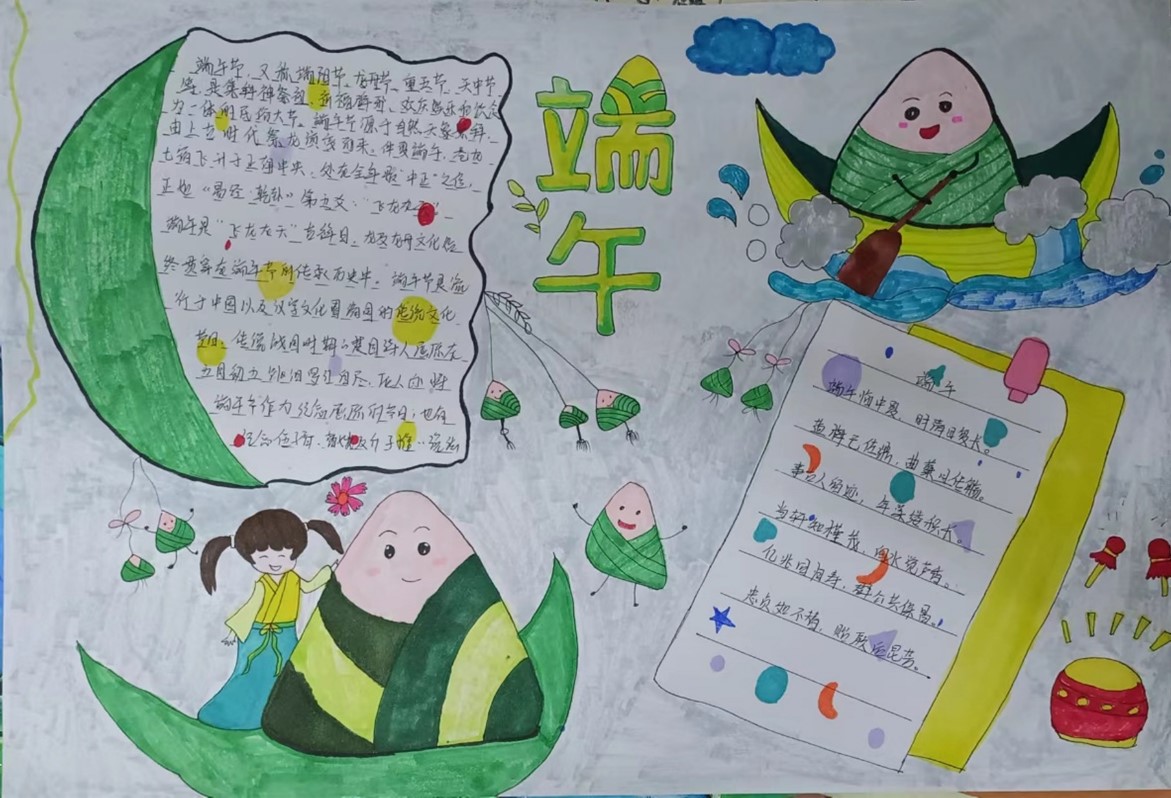 端午节，又称端阳节、龙舟节、重五节、天中节
等，是集拜神祭祖、祈福辟邪、欢庆娱乐和饮食
为一体的民俗大节。端午节源于自然天象崇拜，
由上古时代祭龙演变而来。仲夏端午，苍龙
七宿飞升于正南中央，处在全年最“中正”之位，
正如《易经·乾卦》第五爻：“飞龙在天”
端午是“飞龙在天”吉祥日，龙及龙舟文化始
终贯穿在端午节的传承历史中。端午节是流
行于中国以及汉字文化圈诸国的传统文化
节日，传说战国时期的楚国诗人屈原在
五月初五跳汨罗江自尽，后人亦将
端午节作为纪念屈原的节日；也有
纪念伍子胥、曹娥及介子推
端午
端午
端午临中夏，时清日复长。
盐梅已佐鼎，曲糵且传觞。
事古人留迹，年深缕积长。
当轩知槿茂，向水觉芦香。
亿兆同归寿，群公共保昌。
忠贞如不替，贻厥后昆芳。